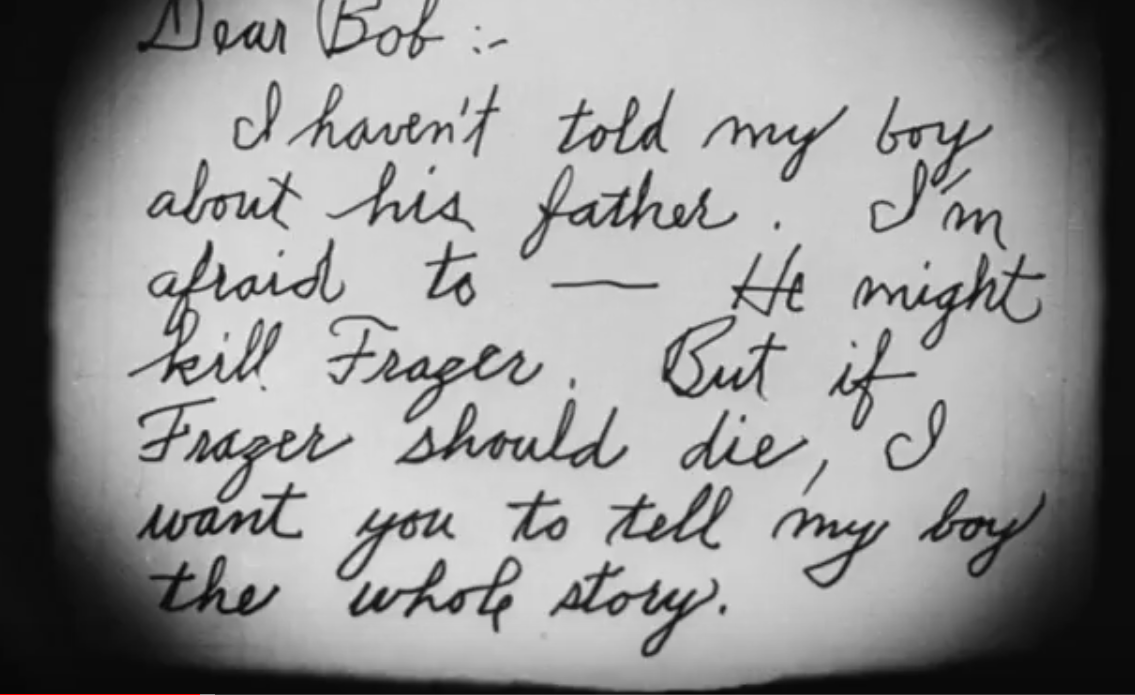 Dear Bob :-
I haven't told my boy
about his father. I'm
afraid to — He might
kill Frazer. But if
Frazer should die, I
want you to tell my boy
the whole story.